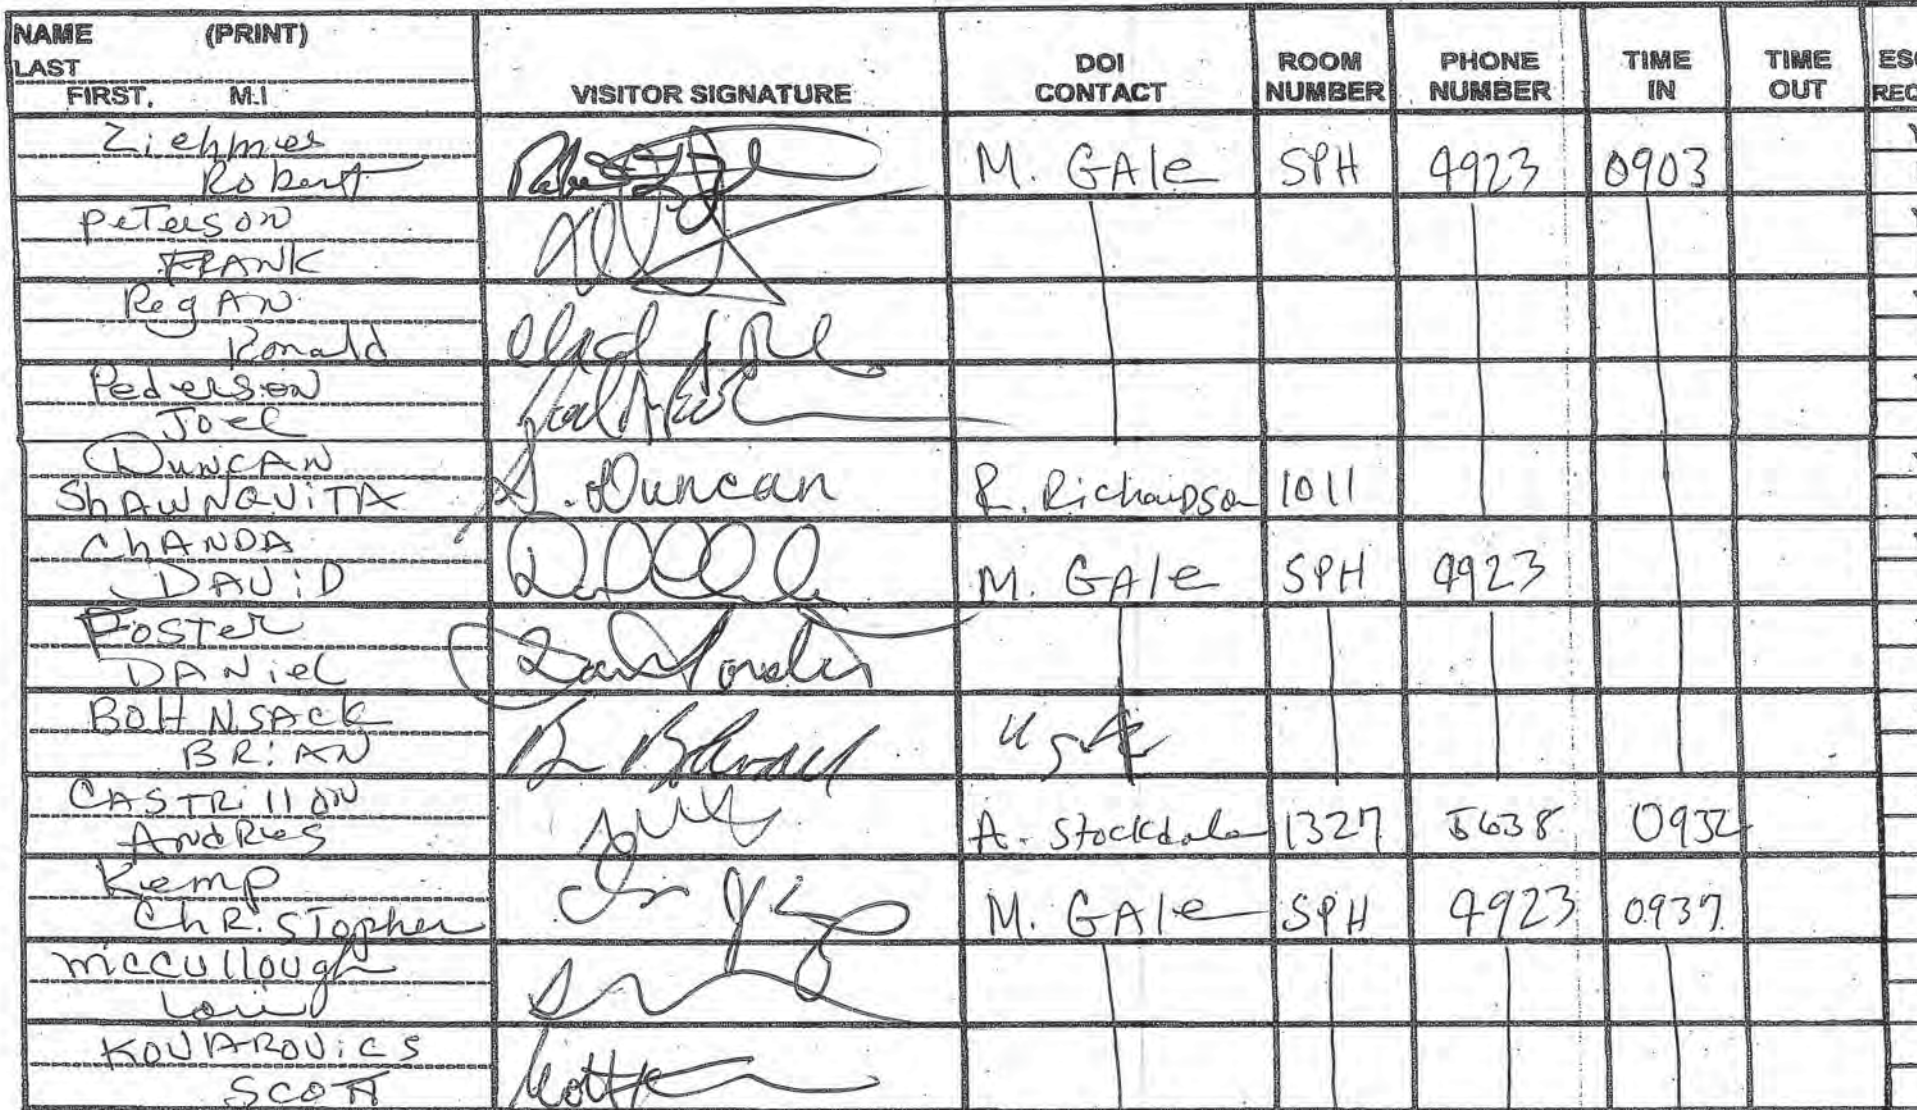 NAME (PRINT)
LAST
FIRST, M.I
VISITOR SIGNATURE
DOI CONTACT
ROOM NUMBER
PHONE NUMBER
TIME IN
TIME OUT
Ziehmes
Robert
M. GAle SPH 4923 0903
PeTerson
FRANK
RegAN
Ronald
Pederson
Joel
DUNCAN
ShAWNQUiTA
S. Duncan
R. Richardson 1011
ChANDA
DAViD
M. GAle SPH 4923
FosTer
DANieL
BOHNSAck
BRiAN
CASTRillON
AndRes
A. Stockdale 1327 5638 0932
Kemp
ChRiSTopher
M. GAle SPH 4923 0937
mcCullough
Lori
KOVAROViCS
SCOTT